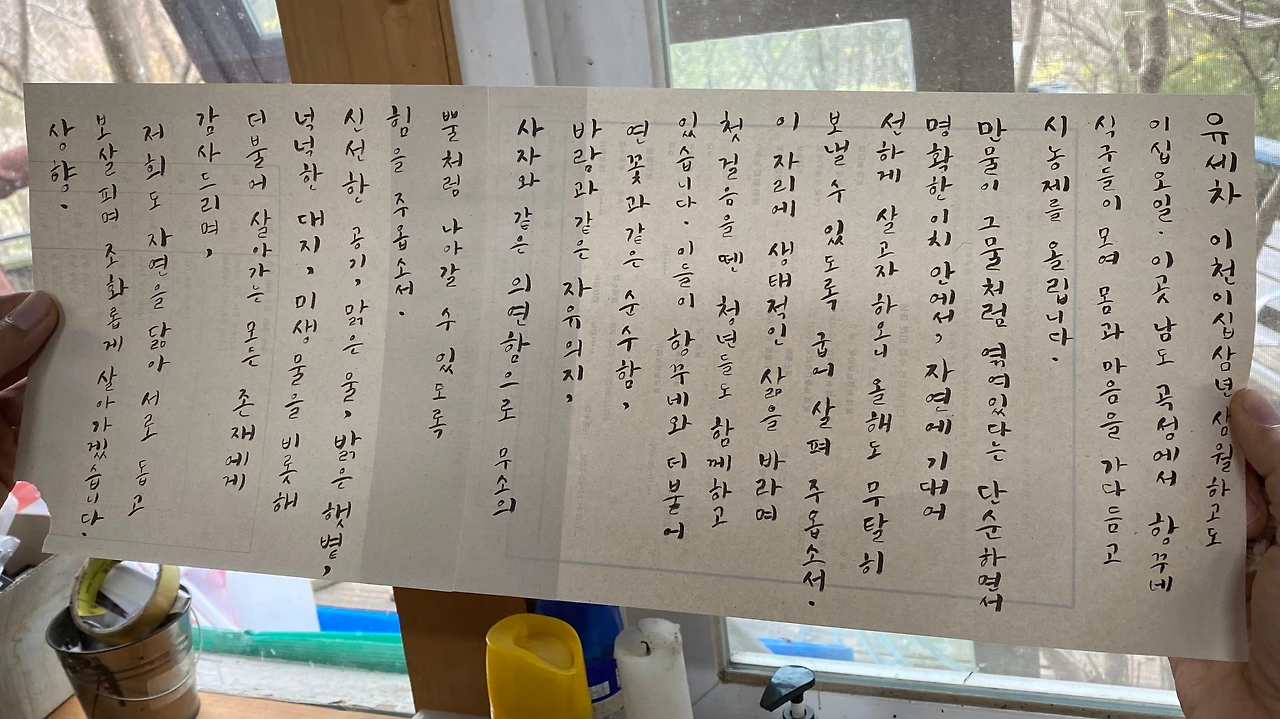 유세차 이천이십삼년 삼월하고도
이십오일. 이곳 남도 곡성에서 항꾸네
식구들이 모여 몸과 마음을 가다듬고
시농제를 올립니다.
만물이 그물처럼 엮여있다는 단순하면서
명확한 이치 안에서, 자연에 기대어
선하게 살고자 하오니 올해도 무탈히
보낼 수 있도록 굽어 살펴 주옵소서.
이 자리에 생태적인 삶을 바라며
첫 걸음을 뗀 청년들도 함께하고
있습니다. 이들이 항꾸네와 더불어
연꽃과 같은 순수함,
바람과 같은 자유의지,
사자와 같은 의연함으로 무소의
뿔처럼 나아갈 수 있도록
힘을 주옵소서.
신선한 공기, 맑은 물, 밝은 햇볕,
넉넉한 대지, 미생물을 비롯해
더불어 살아가는 모든 존재에게
감사드리며,
저희도 자연을 닮아 서로 돕고
보살피며 조화롭게 살아가겠습니다.
상향.